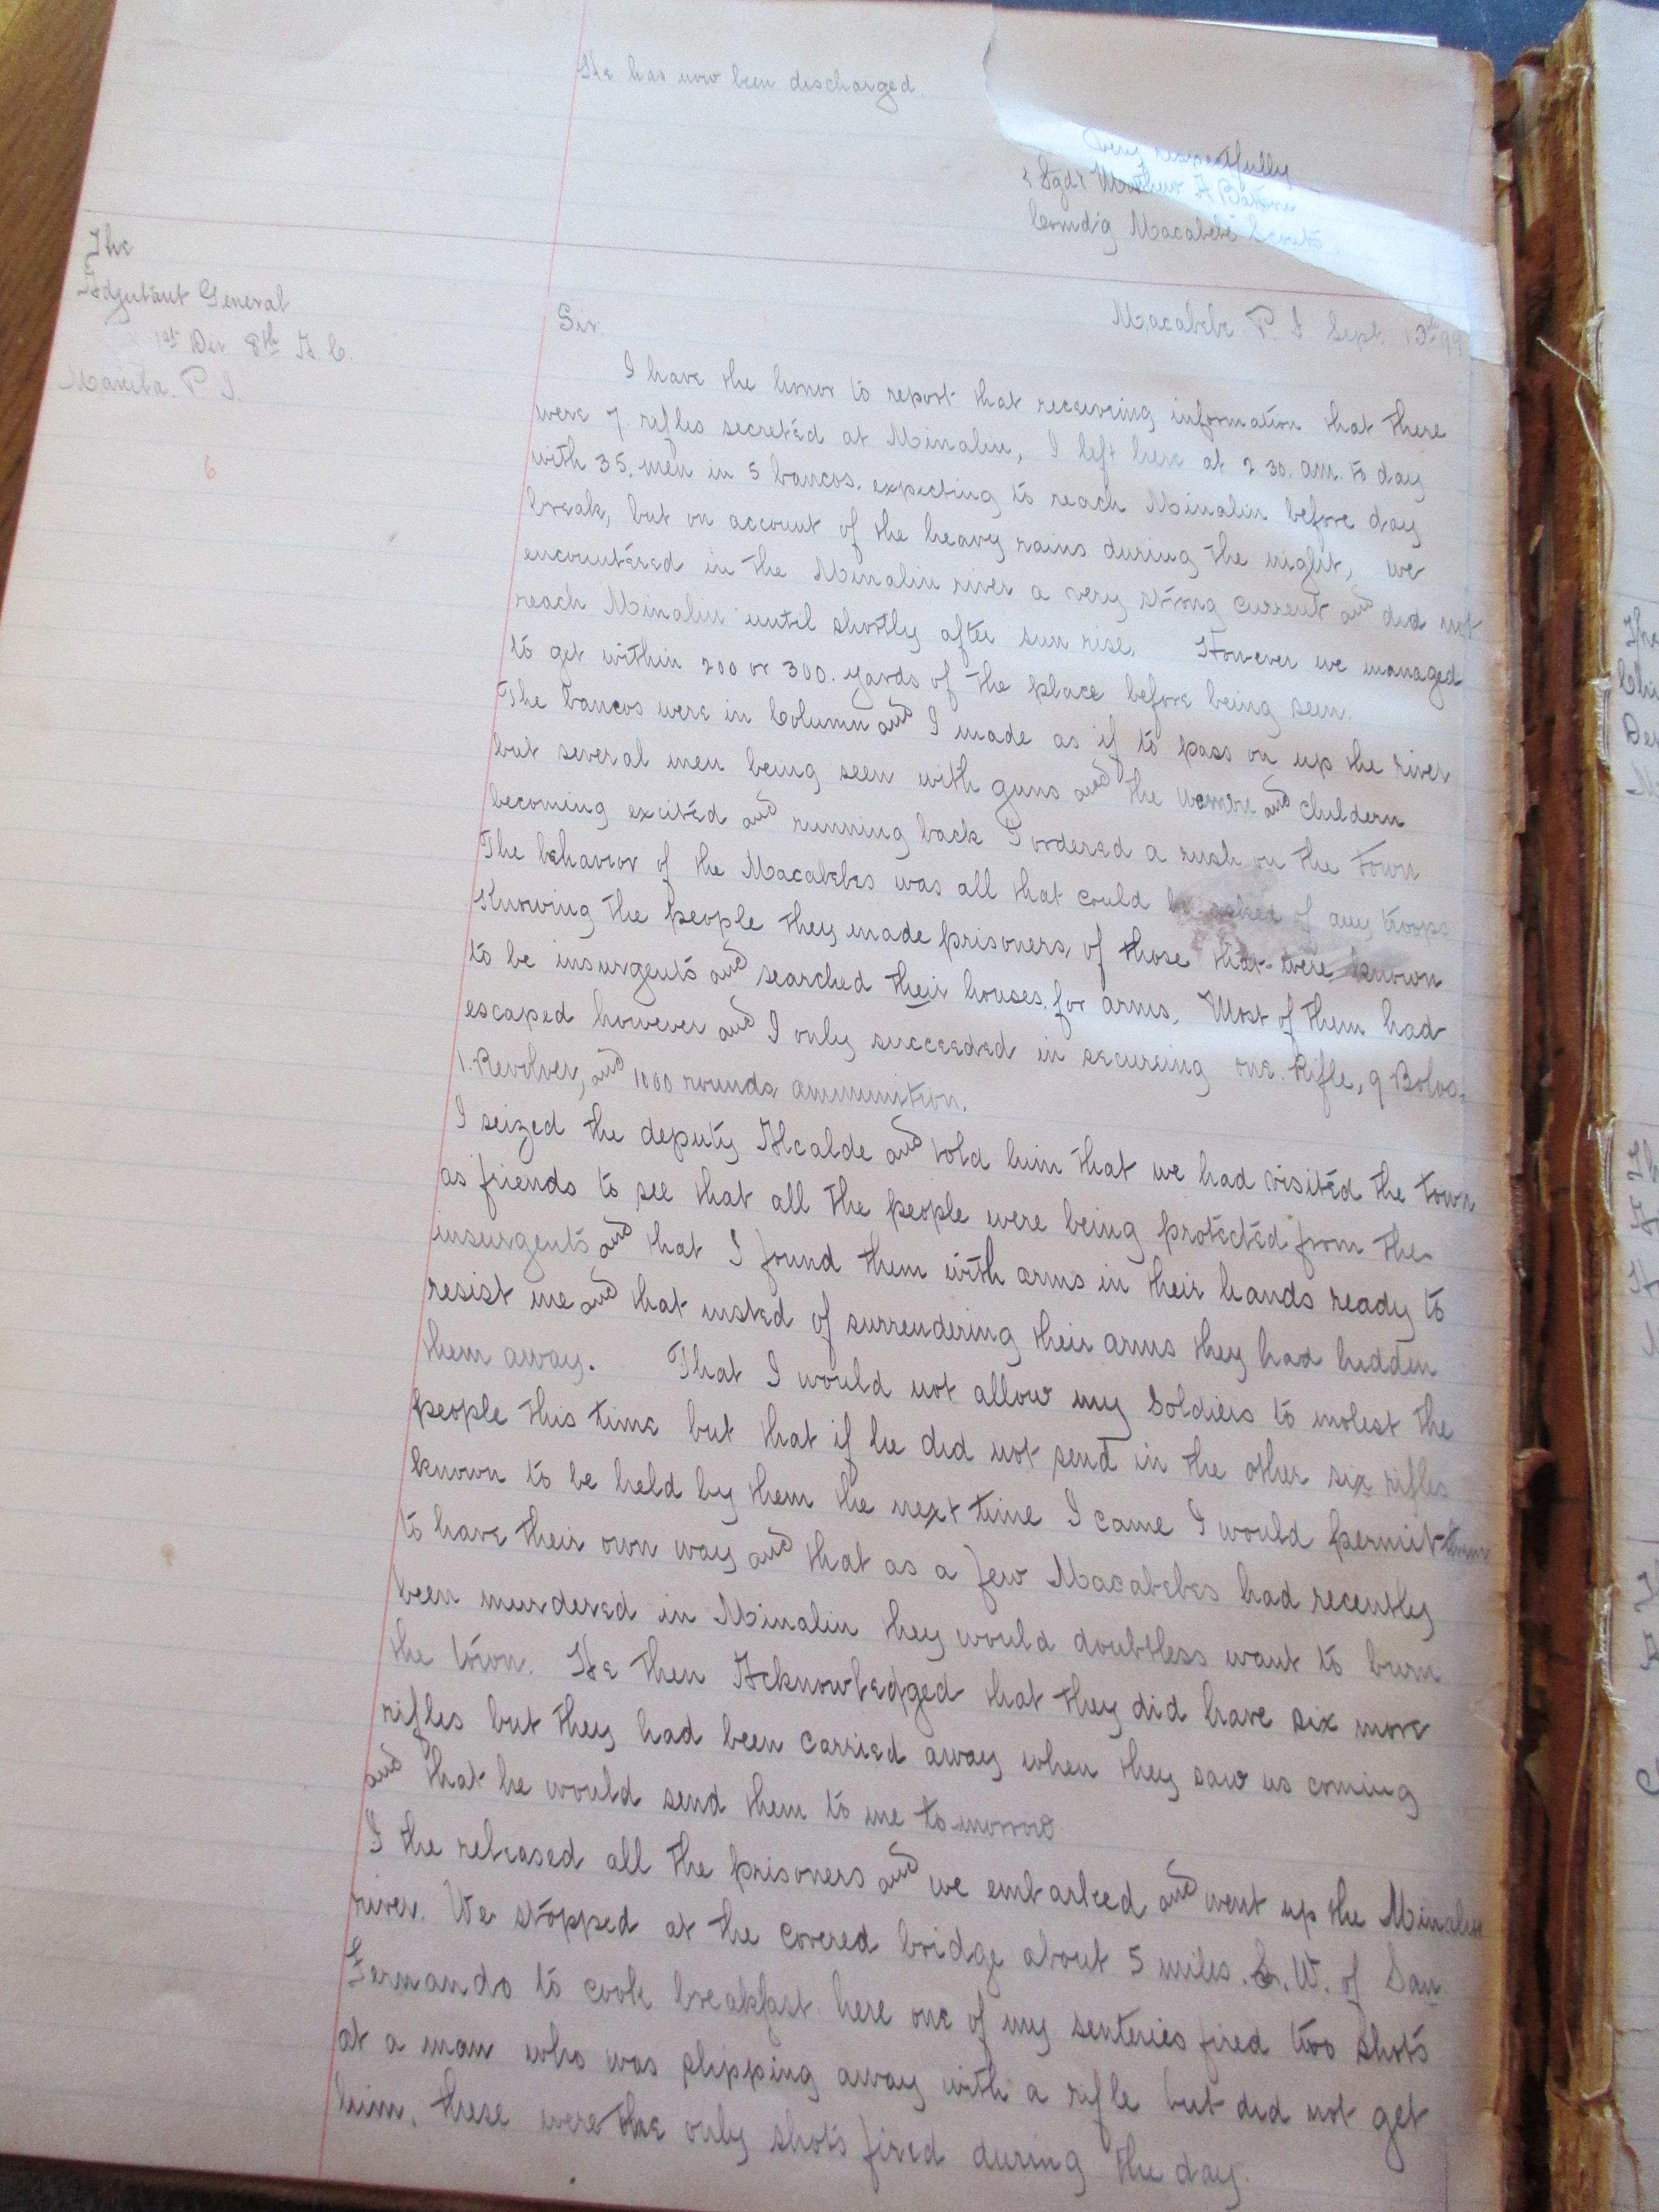 He has now been discharged.
Very respectfully
(Sgd) Mathew A Batson
Comd'g Macabebe Scouts
The
Adjutant General
1st Div 8th A. C.
Manila. P I.
6
Macabebe P. I Sept. 13th 99
Sir.
I have the honor to report that receiving information that there
were 7. rifles secreted at Minalin, I left here at 2.30. am. to day
with 35. men in 5 bancos. expecting to reach Minalin before day
break, but on account of the heavy rains during the night, we
encountered in the Minalin river a very strong current and did not
reach Minalin until shortly after sun rise. However we managed
to get within 200 or 300. yards of the place before being seen.
The bancos were in Column and I made as if to pass on up the river
but several men being seen with guns and the women and childern
becoming excited and running back I ordered a rush on the town
The behavior of the Macabebes was all that could be asked of any troops
Knowing the people they made prisoners, of those that were known
to be insurgents and searched their houses. for arms. Most of them had
escaped however and I only succeeded in secureing one. Rifle, 9 Bolos,
1. Revolver, and 1000 rounds ammunition.
I seized the deputy Alcalde and told him that we had visited the town
as friends to see that all the people were being protected from the
insurgents and that I found them with arms in their hands ready to
resist me and that insted of surrendering their arms they had hidden
them away. That I would not allow my Soldiers to molest the
people this time but that if he did not send in the other six rifles
known to be held by them the next time I came I would permit them
to have their own way and that as a few Macabebes had recently
been murdered in Minalin they would doubtless want to burn
the town. He then Acknowledged that they did have six more
rifles but they had been carried away when they saw us coming
and that he would send them to me to-morrow
I the released all the prisoners and we embarked and went up the Minalin
river. We stopped at the covered bridge about 5 miles. S. W. of San
Fernando to cook breakfast. here one of my senteries fired two shots
at a man who was slipping away with a rifle but did not get
him. these were the only shots fired during the day.